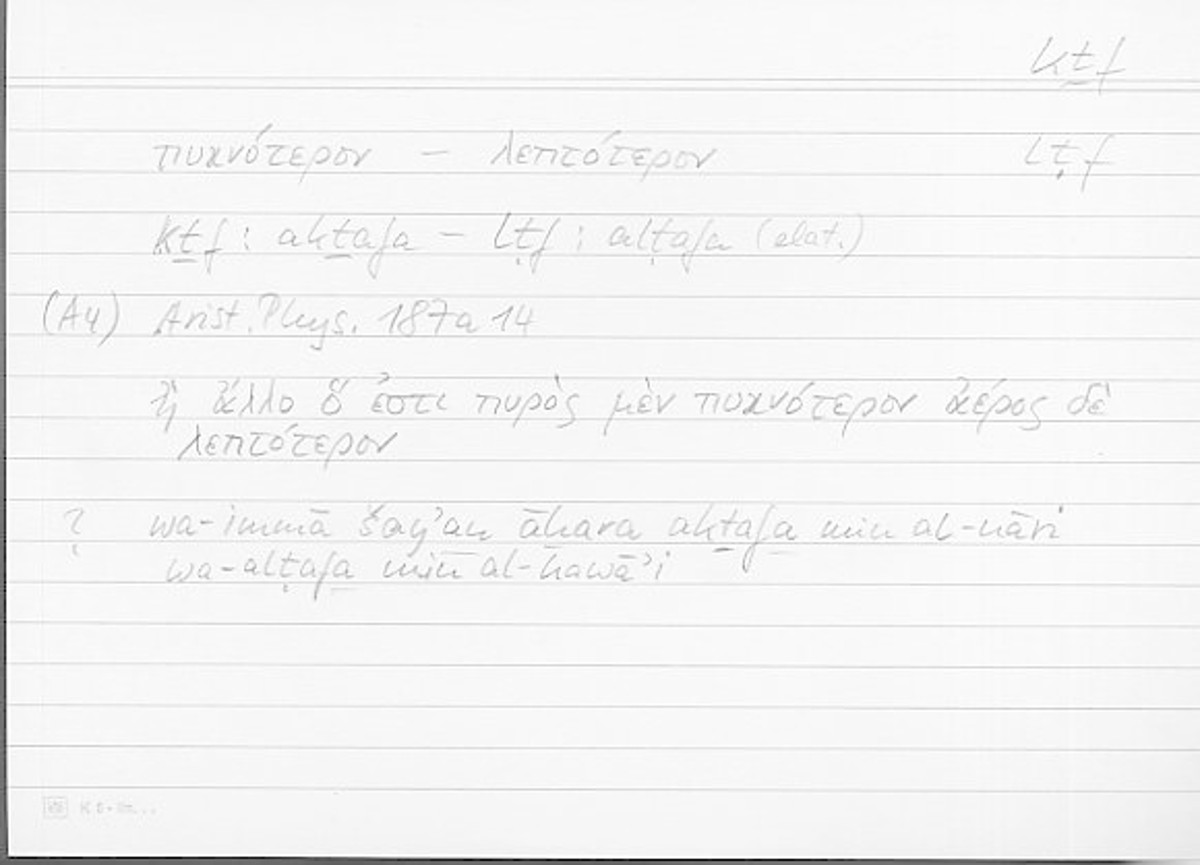 kṯf
πυκνότερον — λεπτότερον lṭf
kṯf : akṯafa — lṭf : alṭafa (elat.)
(A4) Arist. Phys. 187a14
ἢ ἄλλο ὅ ἐστι πυρὸς μὲν πυκνότερον ἀέρος δὲ
λεπτότερον
? wa-immā šayʾan āḫara akṯafa min al-nāri
wa-alṭafa min al-hawāʾi